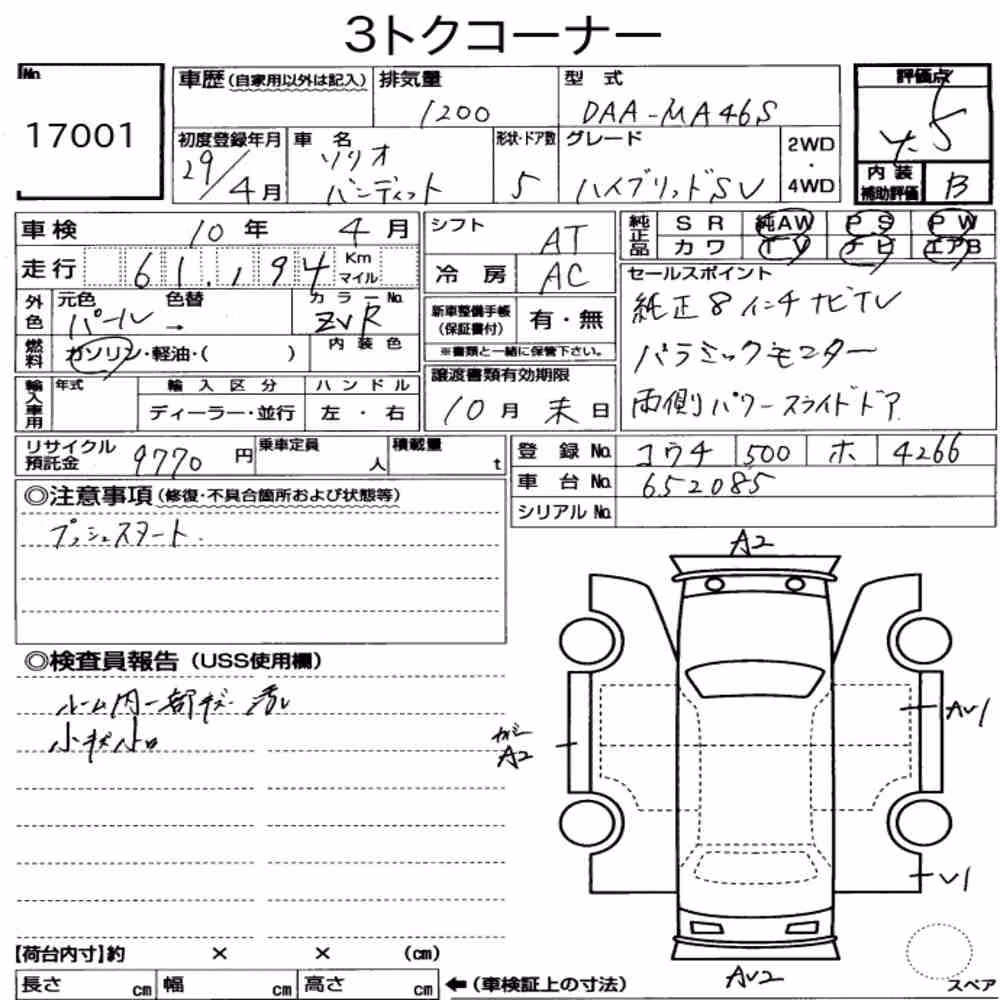 3トクコーナー
No.
17001
車歴(自家用以外は記入)
排気量
1200
型 式
DAA-MA46S
評価点
5
初度登録年月
29/4月
車 名
ソリオ
バンディット
形状・ドア数
5
グレード
ハイブリッドSV
2WD
・
4WD
内 装
補助評価
B
車検 10年 4月
シフト
AT
純正品
S R 純AW P S P W
カワ T V ナビ エアB
走行 61,194 Km マイル
冷 房
AC
セールスポイント
純正8インチナビTV
パノラミックモニター
両側パワースライドドア
外色
元色 色替
パール →
カラーNo.
ZVR
新車整備手帳
(保証書付)
有・無
※書類と一緒に保管下さい。
燃料
ガソリン・軽油・( )
内 装 色
輸入車用
年式
輸 入 区 分
ディーラー・並行
ハ ン ド ル
左 ・ 右
譲渡書類有効期限
10月 末日
リサイクル
預託金
9770 円
乗車定員
人
積載量
t
登 録 No. コウチ 500 ホ 4266
車 台 No. 652085
シリアル No.
◎注意事項(修復・不具合箇所および状態等)
プッシュスタート.
◎検査員報告(USS使用欄)
ルーム内一部キズ 汚レ
小キズ小凹
A2
AU1
A2
U1
AU2
スペア
【荷台内寸】約 × × (cm)
長さ cm 幅 cm 高さ cm ←(車検証上の寸法)